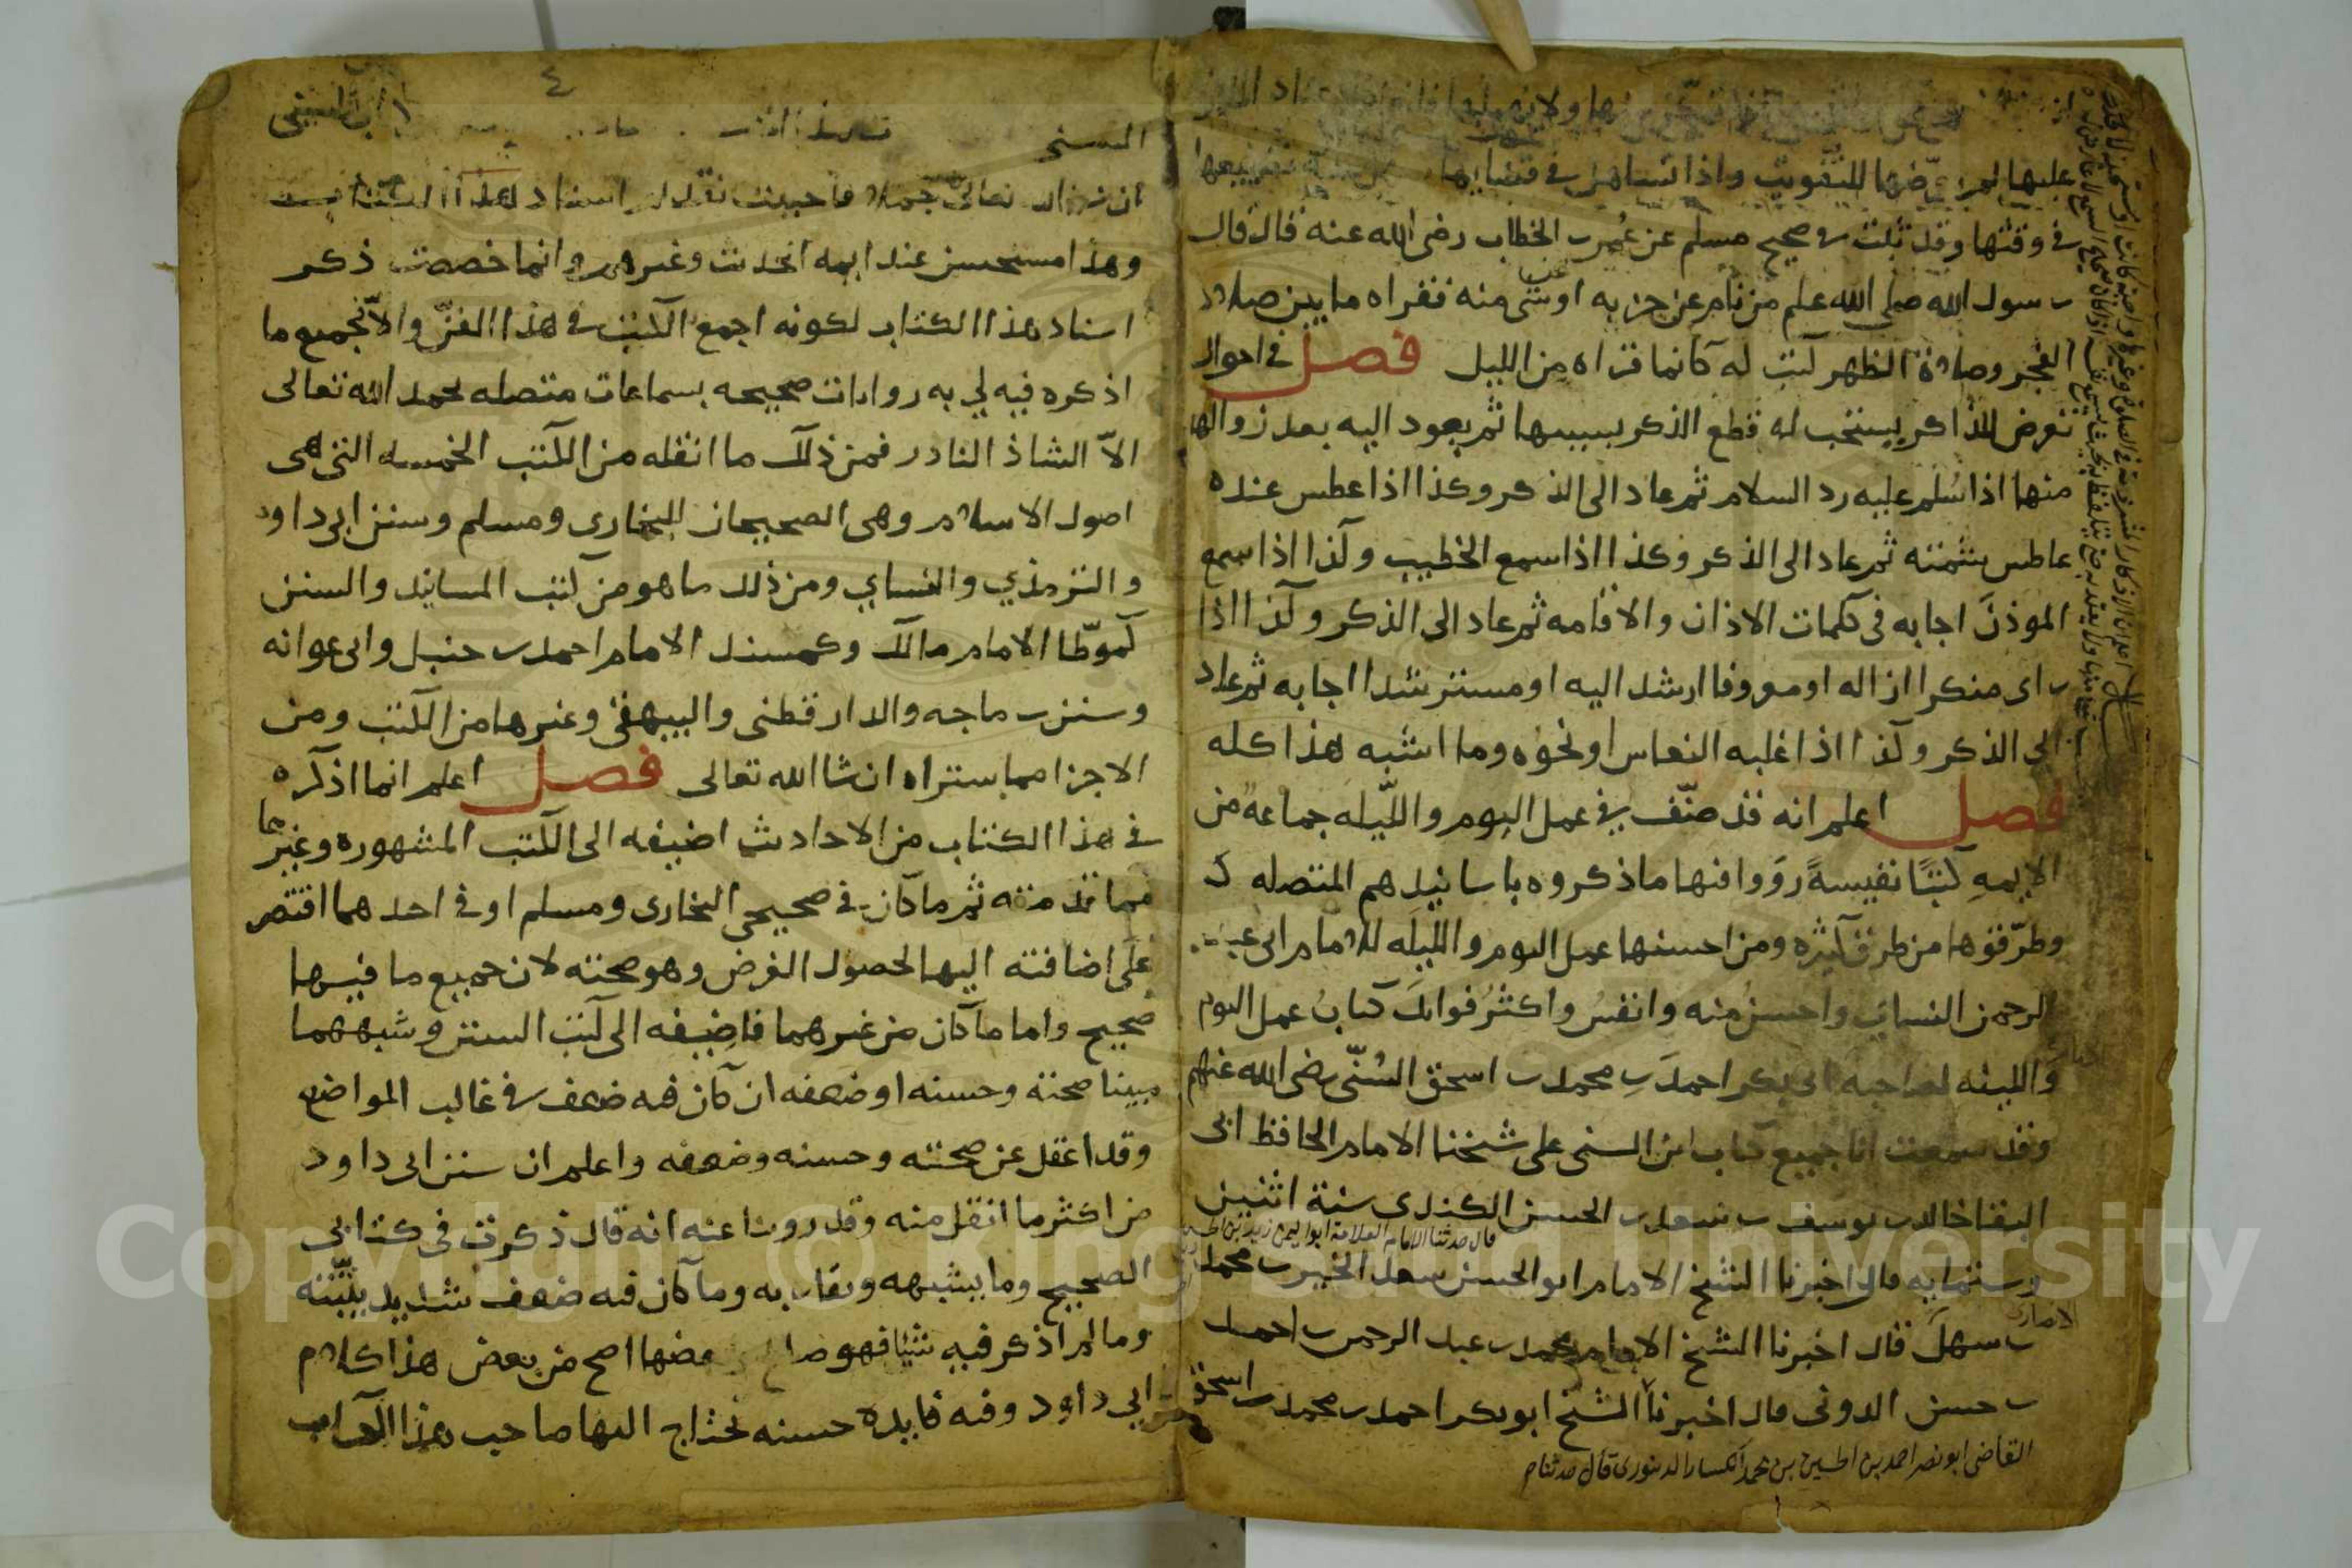 ولا يهملها فانه اذا اعتاد الملازمة
عليها لم يعرّضها للتفويت واذا تساهل في قضايها سهل عليه تضييعها
في وقتها وقد ثبت في صحيح مسلم عن عمر بن الخطاب رضى الله عنه قال قال
رسول الله صلى الله علم من نام عن حزبه او شى منه فقراه ما بين صلاة
الفجر وصلاة الظهر كتب له كانما قراه من الليل فصل في احوال
تعرض للذاكر يستحب له قطع الذكر بسببها ثم يعود اليه بعد زوالها
منها اذا سُلم عليه رد السلام ثم عاد الى الذكر وكذا اذا عطس عنده
عاطس شمته ثم عاد الى الذكر وكذا اذا سمع الخطيب وكذا اذا سمع
الموذنَ اجابه في كلمات الاذان والاقامه ثم عاد الى الذكر وكذا اذا
راى منكرا ازاله او معروفا ارشد اليه او مسترشدا اجابه ثم عاد
الى الذكر وكذا اذا غلبه النعاس او نحوه وما اشبه هذا كله
فصل اعلم انه قد صنّف في عمل اليوم والليله جماعة من
الايمهِ كتبًا نفيسةً روَوا فيها ما ذكروه باسانيدهم المتصله
وطرّقوها من طرق كثيره ومن احسنها عمل اليوم والليله للامام ابى عبد
الرحمن النساى واحسنُ منه وانفسُ واكثرُ فوائد كتابُ عمل اليوم
والليله لصاحبه ابى بكر احمدَ بن محمد بن اسحق السُنّى رضى الله عنهم
وقد سمعت انا جميع كتاب ابن السنى على شيخنا الامام الحافظ ابى
البقا خالد بن يوسف بن سعد بن الحسن الكندى سنة اثنين
قال حدثنا الامام العلامة ابو اليمن زيد بن الحسن
وستمايه قال اخبرنا الشيخ الامام ابو الحسن سعد الخير بن محمد
بن سهل قال اخبرنا الشيخ الامام محمد بن عبد الرحمن بن احمد
بن حسن الدونى قال اخبرنا الشيخ ابو بكر احمد بن محمد بن اسحق
القاضى ابو نصر احمد بن الحسين بن محمد الكسار الدينورى قال حدثنا
٤
السنى
ان شا الله تعالى جمله فاحببت تقديم اسناد هذا الكتاب
وهذا مستحسن عند ايمه الحديث وغيرهم وانما خصصت ذكر
اسناد هذا الكتاب لكونه اجمع الكتب في هذا الفنّ والا فجميع ما
اذكره فيه لي به روايات صحيحه بسماعات متصله بحمد الله تعالى
الاّ الشاذ النادر فمن ذلك ما انقله من الكتب الخمسه التى هى
اصول الاسلام وهى الصحيحان للبخارى ومسلم وسنن ابى داود
والترمذي والنساي ومن ذلك ما هو من كتب المسانيد والسنن
كموطّا الامام مالك وكمسند الامام احمد بن حنبل وابى عوانه
وسنن بن ماجه والدارقطنى والبيهقى وغيرها من الكتب ومن
الاجزا مما ستراه ان شا الله تعالى فصل اعلم انما اذكره
في هذا الكتاب من الاحاديث اضيفه الى الكتب المشهوره وغيرها
مما قدمته ثم ما كان في صحيحى البخارى ومسلم او في احدهما اقتصر
على اضافته اليها لحصول الغرض وهو صحته لان جميع ما فيها
صحيح واما ما كان من غيرهما فاضيفه الى كتب السنن وشبهها
مبينا صحته وحسنه او ضعفه ان كان فيه ضعف في غالب المواضع
وقد اغفل عن صحته وحسنه وضعفه واعلم ان سنن ابى داود
من اكثر ما انقل منه وقد روينا عنه انه قال ذكرت في كتابى
الصحيح وما يشبهه ويقاربه وما كان فيه ضعف شديد بيّنته
وما لم اذكر فيه شيا فهو صالح وبعضها اصح من بعض هذا كلام
ابى داود وفيه فايده حسنه يحتاج اليها صاحب هذا الكتاب
Copyright © King Saud University